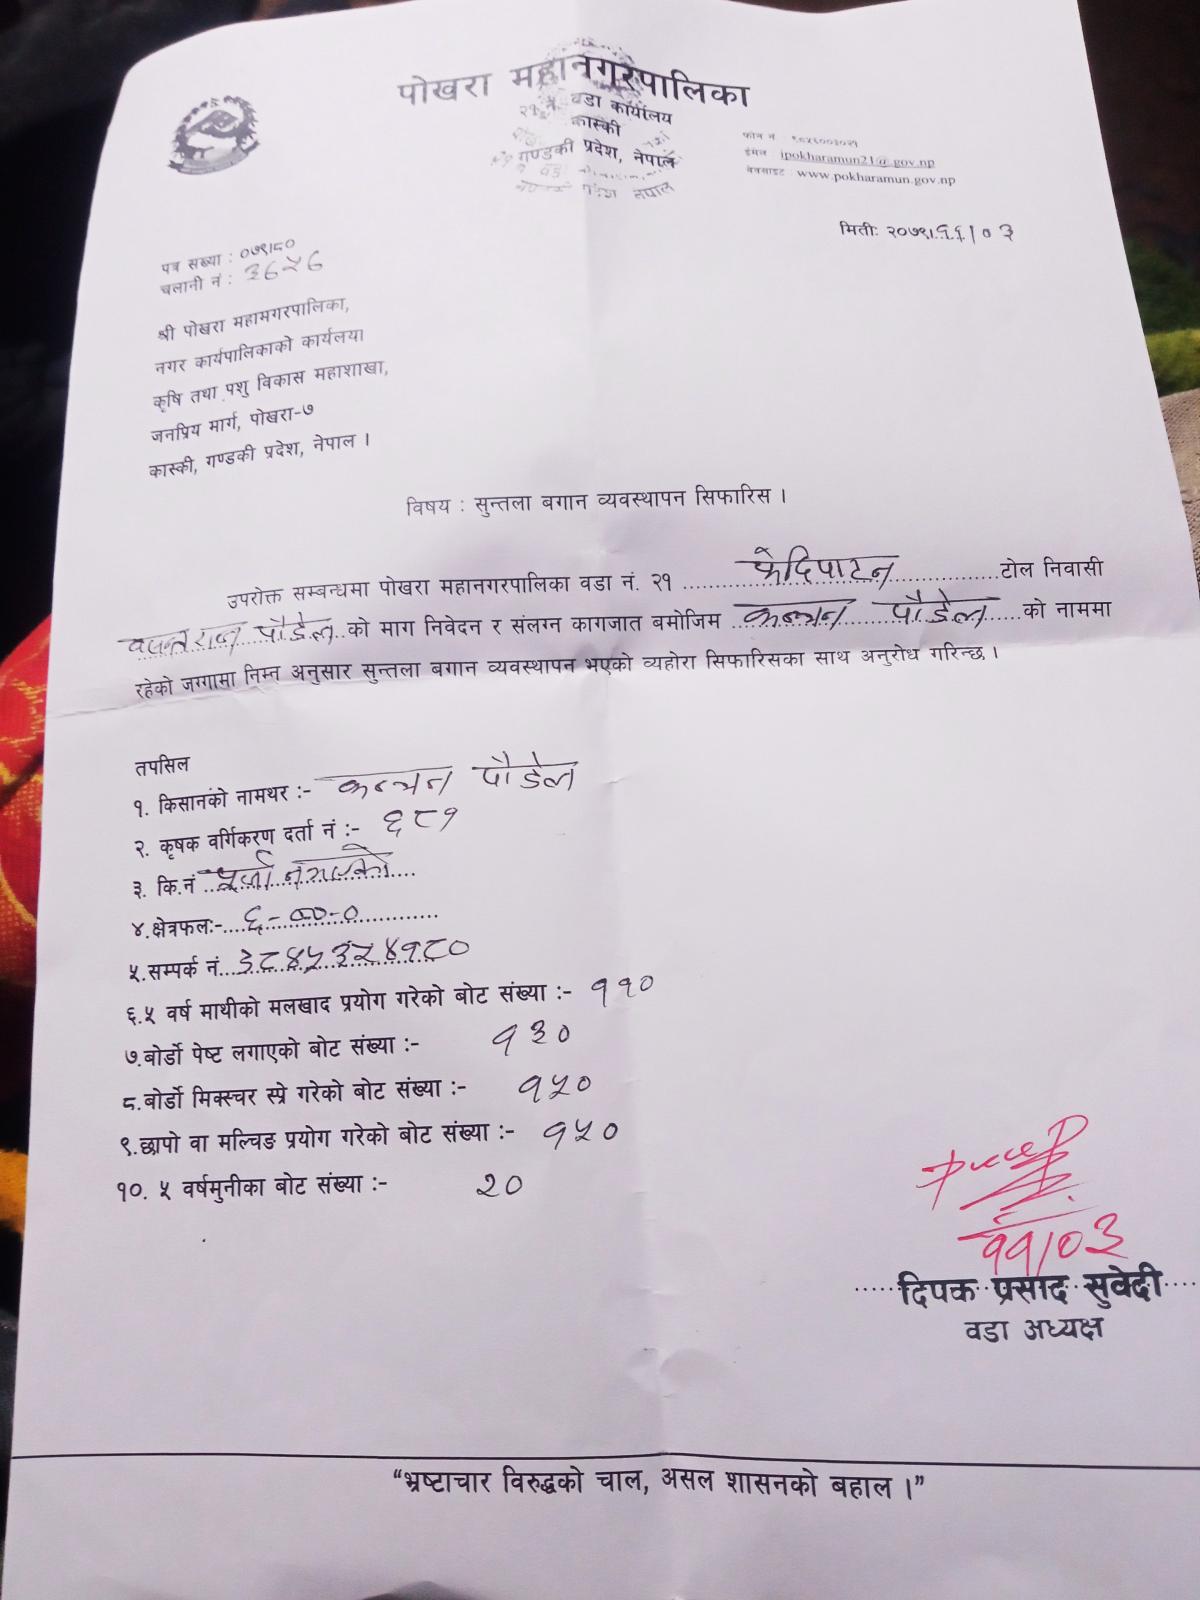 पोखरा महानगरपालिका
२१ नं. वडा कार्यालय
कास्की
गण्डकी प्रदेश, नेपाल
फोन नं
ईमेल : ipokharamun21@gov.np
वेवसाइट : www.pokharamun.gov.np
मितीः २०७९।११।०३
पत्र सख्या : ०७९।८०
चलानी नं :
श्री पोखरा महामगरपालिका,
नगर कार्यपालिकाको कार्यलया
कृषि तथा पशु विकास महाशाखा,
जनप्रिय मार्ग, पोखरा-७
कास्की, गण्डकी प्रदेश, नेपाल ।
विषय : सुन्तला बगान व्यवस्थापन सिफारिस ।
उपरोक्त सम्बन्धमा पोखरा महानगरपालिका वडा नं. २१ फेदिपाटन टोल निवासी
वसन्तराज पौडेल को माग निवेदन र संलग्न कागजात बमोजिम कन्चन पौडेल को नाममा
रहेको जग्गामा निम्न अनुसार सुन्तला बगान व्यवस्थापन भएको व्यहोरा सिफारिसका साथ अनुरोध गरिन्छ ।
तपसिल
१. किसानको नामथर :- कन्चन पौडेल
२. कृषक वर्गिकरण दर्ता नं :- ६८१
३. कि.नं पूर्जा नभएको
४.क्षेत्रफलः- ६-००-०
५.सम्पर्क नं.
६.५ वर्ष माथीको मलखाद प्रयोग गरेको बोट संख्या :- ११०
७.बोर्डो पेष्ट लगाएको बोट संख्या :- १३०
८.बोर्डो मिक्स्चर स्प्रे गरेको बोट संख्या :- १५०
९.छापो वा मल्चिङ प्रयोग गरेको बोट संख्या :- १५०
१०. ५ वर्षमुनीका बोट संख्या :- २०
११/०३
दिपक प्रसाद सुवेदी
वडा अध्यक्ष
“भ्रष्टाचार विरुद्धको चाल, असल शासनको बहाल ।”